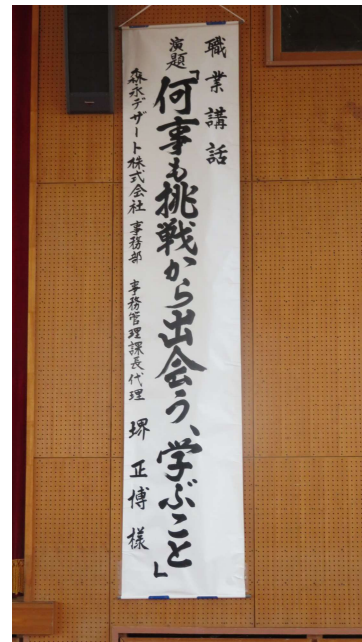 職業講話
演題「何事も挑戦から出会う、学ぶこと」
森永デザート株式会社 事務部 事務管理課長代理 堺 正博 様